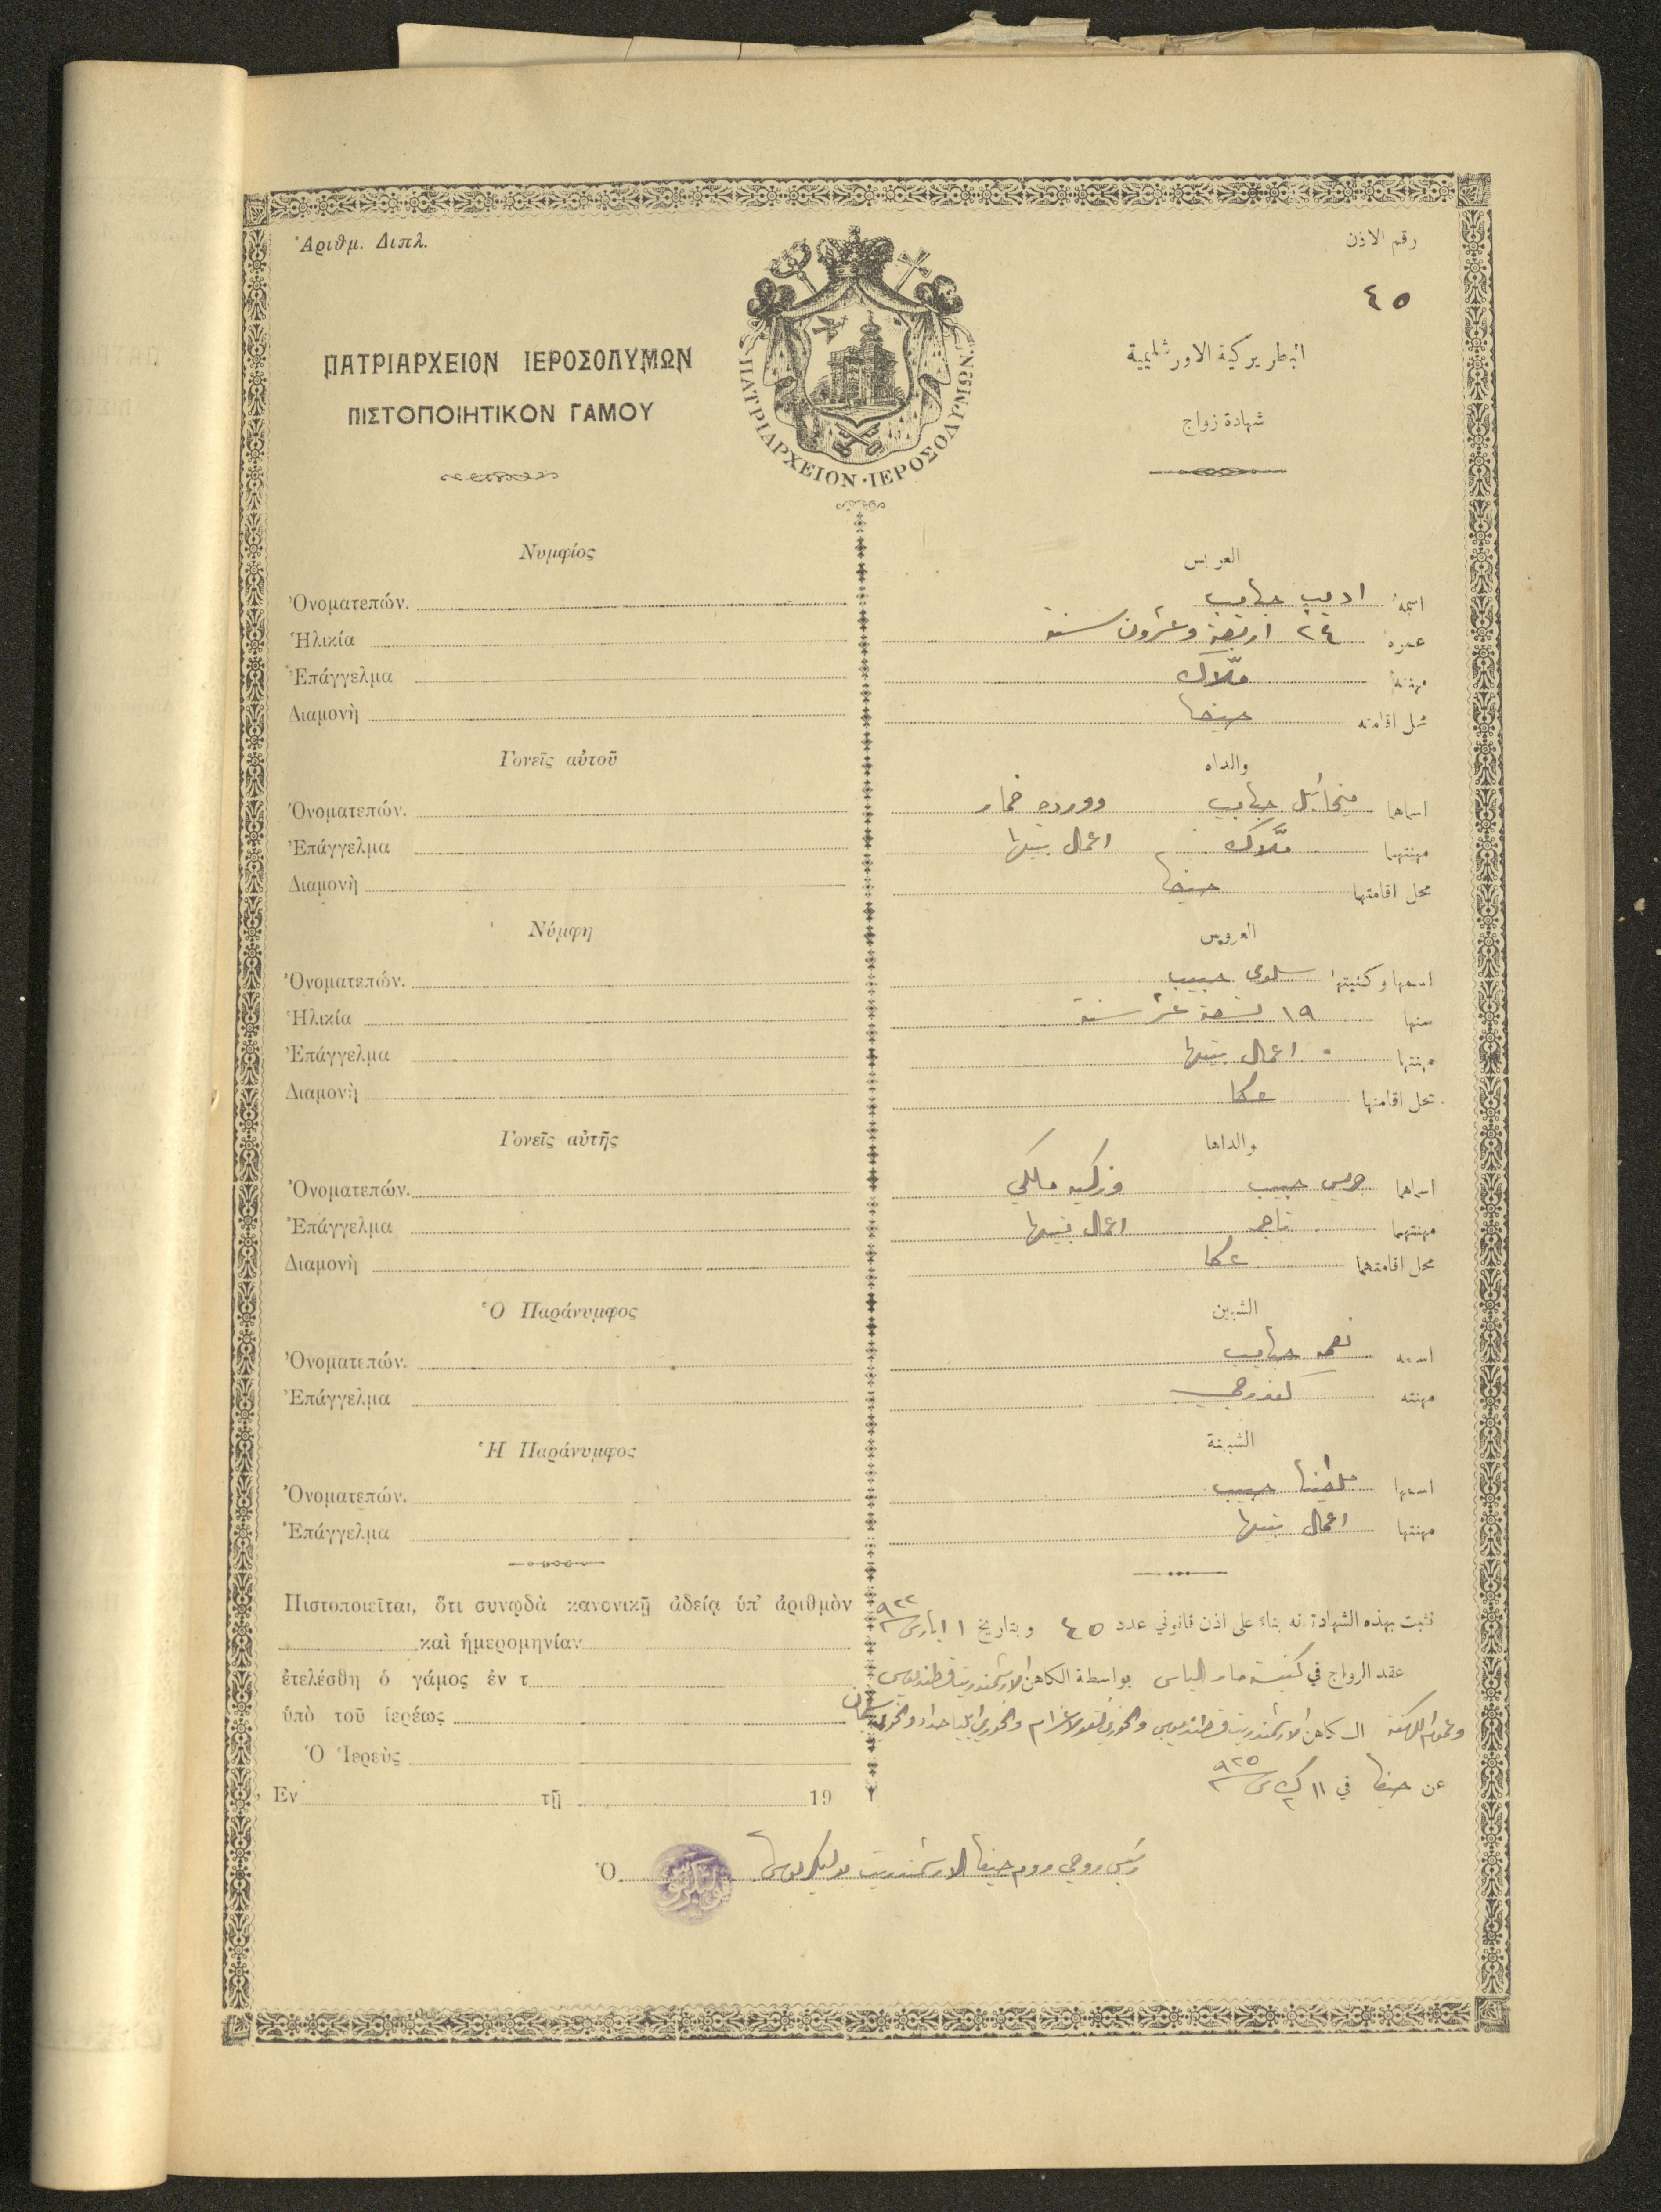 Ἀριθμ. Διπλ.
رقم الاذن
٤٥
ΠΑΤΡΙΑΡΧΕΙΟΝ ΙΕΡΟΣΟΛΥΜΩΝ
البطريركية الاورشليمية
ΠΙΣΤΟΠΟΙΗΤΙΚΟΝ ΓΑΜΟΥ
شهادة زواج
ΠΑΤΡΙΑΡΧΕΙΟΝ · ΙΕΡΟΣΟΛΥΜΩΝ
Νυμφίος
العريس
Ὀνοματεπών.
اسمه اديب حبايب
Ἡλικία
عمره ٢٤ اربعة وعشرون سنة
Ἐπάγγελμα
مهنته ملّاك
Διαμονὴ
محل اقامته حيفا
Γονεῖς αὐτοῦ
والداه
Ὀνοματεπών.
اسماهما مخائيل حبايب ووردة خمار
Ἐπάγγελμα
مهنتهما ملّاك اعمال بيتها
Διαμονὴ
محل اقامتهما حيفا
Νύμφη
العروس
Ὀνοματεπών.
اسمها وكنيتها سلوى حبيب
Ἡλικία
سنها ١٩ تسعة عشر سنة
Ἐπάγγελμα
مهنتها اعمال بيتها
Διαμονὴ
محل اقامتها عكا
Γονεῖς αὐτῆς
والداها
Ὀνοματεπών.
اسماهما جريس حبيب وزكيه ملكي
Ἐπάγγελμα
مهنتهما تاجر اعمال بيتها
Διαμονὴ
محل اقامتهما عكا
Ὁ Παράνυμφος
الشبين
Ὀνοματεπών.
اسمه نعمه حبايب
Ἐπάγγελμα
مهنته
Ἡ Παράνυμφος
الشبينة
Ὀνοματεπών.
اسمها حبيب
Ἐπάγγελμα
مهنتها اعمال بيتها
Πιστοποιεῖται, ὅτι συνῳδὰ κανονικῇ ἀδείᾳ ὑπ' ἀριθμὸν
καὶ ἡμερομηνίαν
ἐτελέσθη ὁ γάμος ἐν τ
ὑπὸ τοῦ ἱερέως
Ὁ Ἱερεὺς
Ἐν τῇ 19
تثبت بهذه الشهادة انه بناء على اذن قانوني عدد ٤٥ وبتاريخ
عقد الزواج في كنيسة مار الياس بواسطة الكاهن الارشمندريت قسطنديوس
الكاهن الارشمندريت قسطنديوس والخوري والخوري ايليا حداد والخوري سمعان
عن حيفا في ١١ ك٢ سنة ٩٢٥
Ὁ
رئيس روحي روم حيفا الارشمندريت